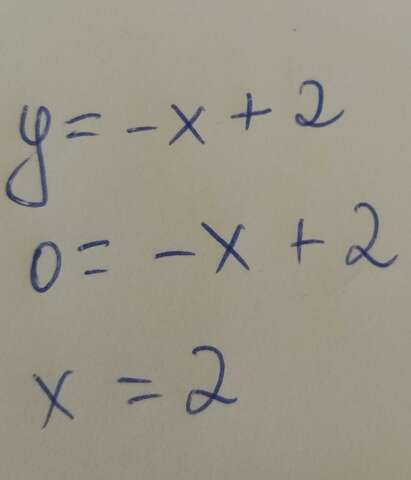 y = -x + 2
0 = -x + 2
x = 2